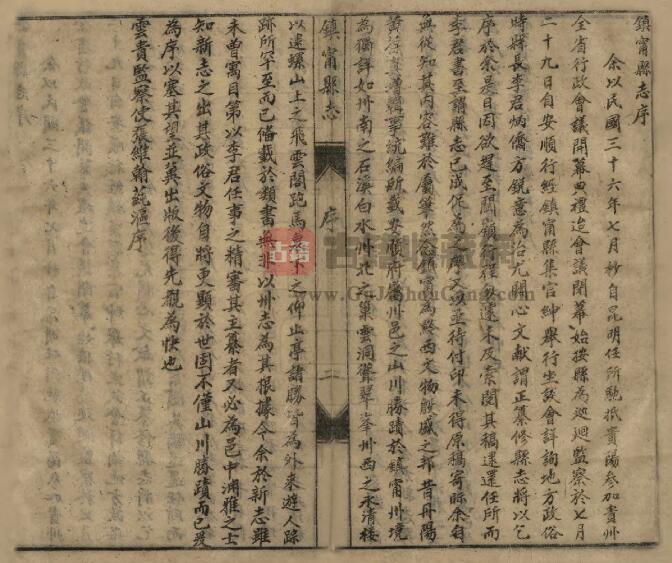 鎮甯縣志序
余以民國三十六年七月杪自昆明任所馳抵貴陽參加貴州
全省行政會議開幕典禮迨會議閉幕始按縣為巡迴監察於七月
二十九日自安順行經鎮甯縣集官紳舉行坐談會詳詢地方政俗
時縣長李君炳僑方銳意為治尤關心文獻謂正纂修縣志將以乞
序於余是日因欲趕至關嶺途徑多遠未及索閱其稿遽還任所而
李君書至謂縣志已成促為之序又以亟待付印未得原稿寄眎余自
無從知其內容難於屬筆然念鎮甯為黔西文物殷盛之邦昔丹陽
黃厚真贈轄事統編所載安順府屬州邑之山川勝蹟於鎮甯州境
為獨詳如州南之石溪白水州北之巢雲洞聳翠峯州西之水清樓
鎮甯縣志
序
二
以逮螺山上之飛雲閣跑馬泉下之仰止亭諸勝皆為外來遊人踪
跡所罕至而已備載於類書無非以州志為其根據今余於新志雖
未曾寓目第以李君任事之精審其主纂者又必為邑中淵雅之士
知新志之出其政俗文物自將更顯於世固不僅山川勝蹟而已爰
為序以塞其望並冀出版後得先覩為快也
雲貴監察使張維翰蒓漚序
古籍
古籍收藏網
www.GuJiShouCang.com